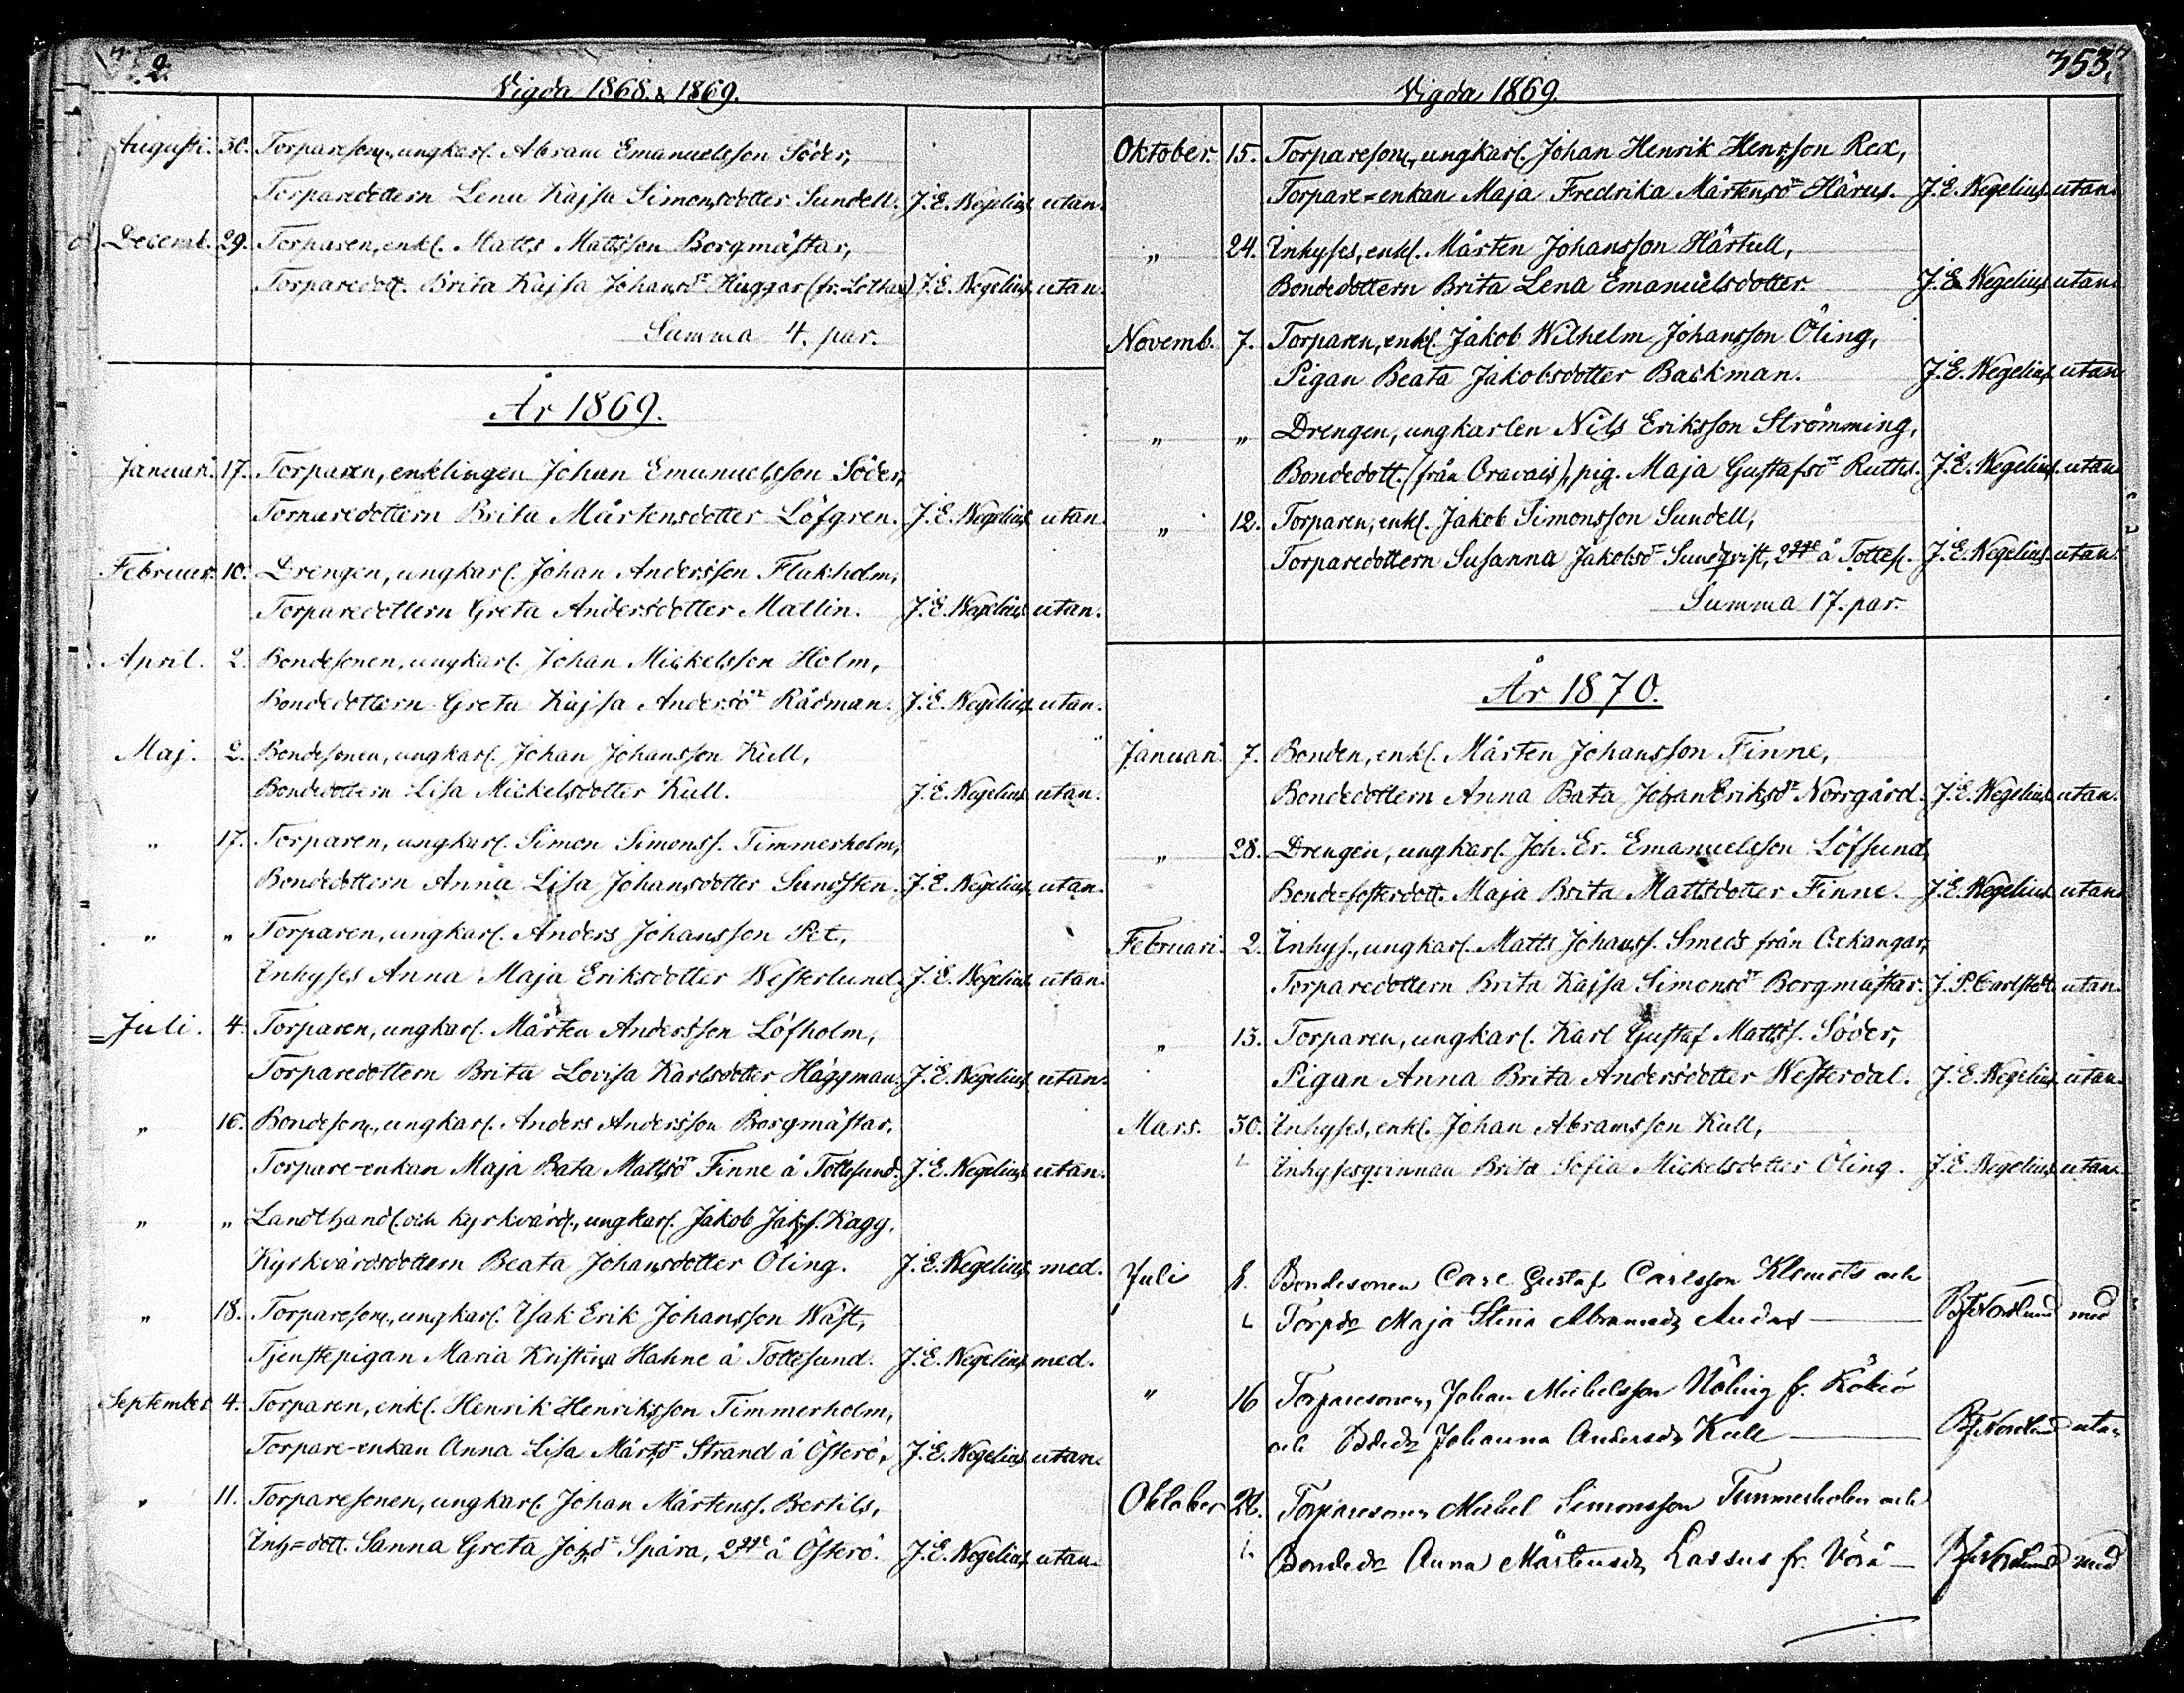 Vigda 1868. & 1869.
Augusti. 30. Torpareson., ungkarl. Abram Emanuelsson Söder,
Torparedottern Lena Kajsa Simonsdotter Sundell. J. E. Wegelius. utan.
Decemb. 29. Torparen, enkl. Matts Mattsson Borgmästar,
Torparedott. Brita Kajsa Johansdr Huggar (fr. Lothar) J. E. Wegelius. utan.
Summa 4. par.
År 1869.
Januari. 17. Torparen, enklingen Johan Emanuelsson Söder,
Torparedottern Brita Mårtensdotter Löfgren. J. E. Wegelius. utan.
Februar. 10. Drengen, ungkarl. Johan Andersson Flakholm,
Torparedottern Greta Andersdotter Matlin. J. E. Wegelius. utan.
April. 2. Bondesonen, ungkarl. Johan Mickelsson Holm,
Bondedottern Greta Kajsa Andersdr Rådman. J. E. Wegelius. utan.
Maj. 2. Bondesonen, ungkarl. Johan Johansson Kull,
Bondedottern Lisa Mickelsdotter Kull. J. E. Wegelius. utan.
" 17. Torparen, ungkarl. Simon Simonss. Timmerholm,
Bondedottern Anna Lisa Johansdotter Sundsten. J. E. Wegelius. utan.
" " Torparen, ungkarl. Anders Johansson Pet,
Inhyses Anna Maja Eriksdotter Westerlund. J. E. Wegelius. utan.
Juli. 4. Torparen, ungkarl. Mårten Andersson Löfholm,
Torparedottern Brita Lovisa Karlsdotter Häggman. J. E. Wegelius. utan.
" 16. Bondeson., ungkarl. Anders Andersson Borgmästar,
Torpare-enkan Maja Bata Mattsdr Finne å Tottesund. J. E. Wegelius. utan.
" " Landthandl. och kyrkvärd., ungkarl. Jakob Jak.s. Kagg,
Kyrkvärdsdottern Beata Johansdotter Öling. J. E. Wegelius. med.
" 18. Torpareson., ungkarl. Isak Erik Johansson Wäst,
Tjenstepigan Maria Kristina Hahne å Tottesund. J. E. Wegelius. med.
September 4. Torparen, enkl. Henrik Henriksson Timmerholm,
Torpare-enkan Anna Lisa Mårt.dr Strand å Österö. J. E. Wegelius. utan.
" 11. Torparesonen, ungkarl. Johan Mårtenss. Bertils,
Inh=dott. Sanna Greta Joh.dr Spåra, 2gge å Österö. J. E. Wegelius. utan.
353.
Vigda 1869.
Oktober. 15. Torpareson., ungkarl. Johan Henrik Henrsson Rex,
Torpare=enkan Maja Fredrika Mårtensdr Härus. J. E. Wegelius. utan.
" 24. Inhyses, enkl. Mårten Johansson Härtull,
Bondedottern Brita Lena Emanuelsdotter J. E. Wegelius. utan.
Novemb. 7. Torparen, enkl. Jakob Wilhelm Johansson Öling,
Pigan Beata Jakobsdotter Backman. J. E. Wegelius. utan.
" " Drengen, ungkarlen Nils Eriksson Strömming,
Bondedott. (från Oravais), pig. Maja Gustafsdr Ruths. J. E. Wegelius. utan.
" 12. Torparen, enkl. Jakob Simonsson Sundell,
Torparedottern Susanna Jakobsdr Sundqvist, 2gge å Tottes. J. E. Wegelius. utan.
Summa 17. par.
År 1870.
Januari. 7. Bonden, enkl. Mårten Johansson Finne,
Bondedottern Anna Bata Johan Eriksdr Norrgård. J. E. Wegelius. utan.
" 28. Drengen, ungkarl. Joh. Er. Emanuelsson Löfsund,
Bonde-fosterdott. Maja Brita Mattsdotter Finne. J. E. Wegelius. utan.
Februari. 2. Inhys., ungkarl. Matts Johanss. Smeds från Oxkangar,
Torparedottern Brita Kajsa Simonsdr Borgmästar. J. P. Carlstedt. utan.
" 13. Torparen, ungkarl. Karl Gustaf Mattss. Söder,
Pigan Anna Brita Andersdotter Westerdal. J. E. Wegelius. utan.
Mars. 30. Inhyses, enkl. Johan Abramsson Kull,
Inhysesqvinnan Brita Sofia Mickelsdotter Öling. J. E. Wegelius. utan.
Juli 8. Bondesonen Carl Gustaf Carlsson Klemets och
Torpdr Maja Stina Abramsdr Nordlund med
" 16 Torparesonen, Johan Michelsson fr.
och Johanna Andersdr Kull Nordlund utan
Oktober 28. Torparesonen Michel Simonsson Timmerholm och
Bondedr Anna Mårtensdr Lassus fr. Vörå Nordlund med